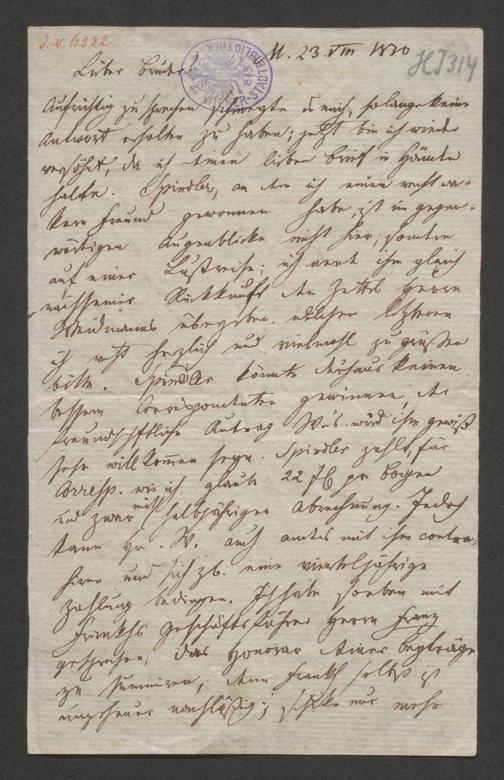 J. N. 6332
M. 23. VIII 1830
HI 314
WIENER STADTBIBLIOTHEK
Lieber Bruder!
Aufrichtig zu sprechen schmerzte es mich, so lange keine
Antwort erhalten zu haben; jetzt bin ich wieder
versöhnt, da ich deinen lieben Brief in Händen
halte. Spindler, an dem ich einen recht wa-
kern Freund gewonnen habe, ist im gegen-
wärtigen Augenblicke nicht hier, sondern
auf einer Lustreise; ich werde ihm gleich
nach seiner Rückkunft den Zettel Herrn
Weidmanns übergeben, welchen letztern
ich recht herzlich und vielmahl zu grüßen
bitte. Spindler könnte durchaus keinen
bessern Correspondenten gewinnen. Der
freundschftliche Antrag W–s wird ihm gewiß
sehr willkommen seyn. Spindler zahlt, für
Corresp. wie ich glaube 22 f pr Bogen
und zwar mit halbjähriger Abrechnung. Jedoch
kann Hr. W. auch anders mit ihm contra-
hiren und sich zb. eine vierteljährige
Zahlung bedingen. Ich habe soeben mit
Frankhs Geschäftsführer Herrn Franz
gesprochen, das Honorar deiner Beyträge
zu summiren, denn Frankh selbst ist
ungeheuer nachläßig; schike nur mehr